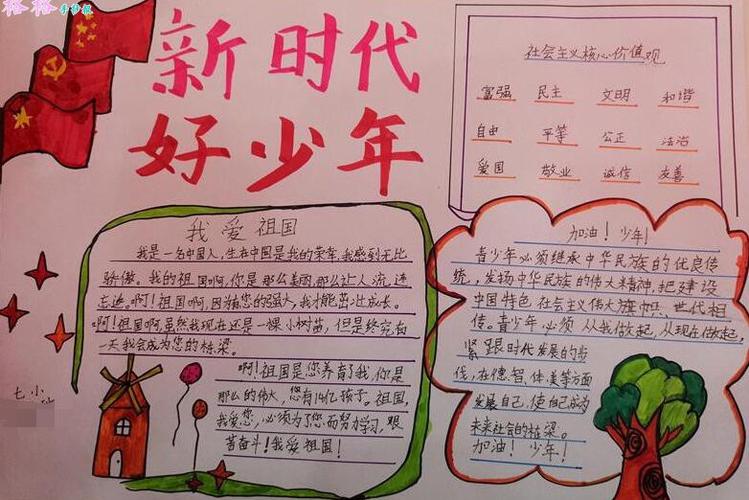 格格手抄报
新时代
好少年
社会主义核心价值观
富强 民主 文明 和谐
自由 平等 公正 法治
爱国 敬业 诚信 友善
我爱祖国
我是一名中国人,生在中国是我的荣幸,我感到无比
骄傲。我的祖国啊,你是那么美丽,那么让人流连
忘返。啊!祖国啊,因为您的强大,我才能茁壮成长。
啊!祖国啊,虽然我现在还是一棵小树苗,但是终究有
一天我会成为您的栋梁。
啊!祖国是您养育了我,你是
那么的伟大,您有14亿孩子。祖国,
我爱您,必须为了您而努力学习,艰
苦奋斗!我爱祖国!
加油!少年!
青少年必须继承中华民族的优良传
统,发扬中华民族的伟大精神,把建设
中国特色社会主义伟大旗帜、世代相
传。青少年必须从我做起,从现在做起,
紧跟时代发展的步
伐,在德、智、体、美等方面
发展自己,使自己成为
未来社会的栋梁。
加油!少年!
七小